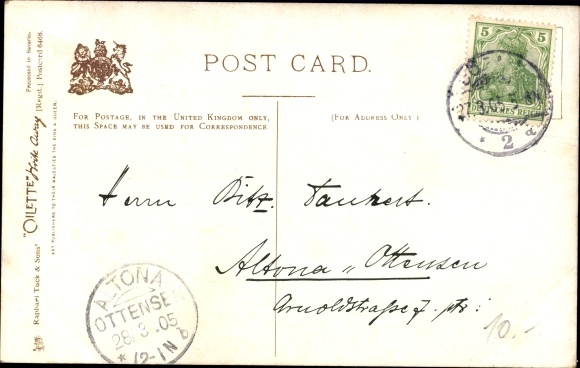 POST CARD.
FOR POSTAGE, IN THE UNITED KINGDOM ONLY,
THIS SPACE MAY BE USED FOR CORRESPONDENCE.
(FOR ADDRESS ONLY)
"OILETTE" Wide Away (Regd.) Postcard 6468.
Raphael Tuck & Sons'
ART PUBLISHERS TO THEIR MAJESTIES THE KING & QUEEN.
Processed in Bavaria.
5 5
2
Herrn
Altona „ Ottensen
Arnoldstraße 7. ptr:
ALTONA
OTTENSE
28.3.05
* 12-1N b
10.-